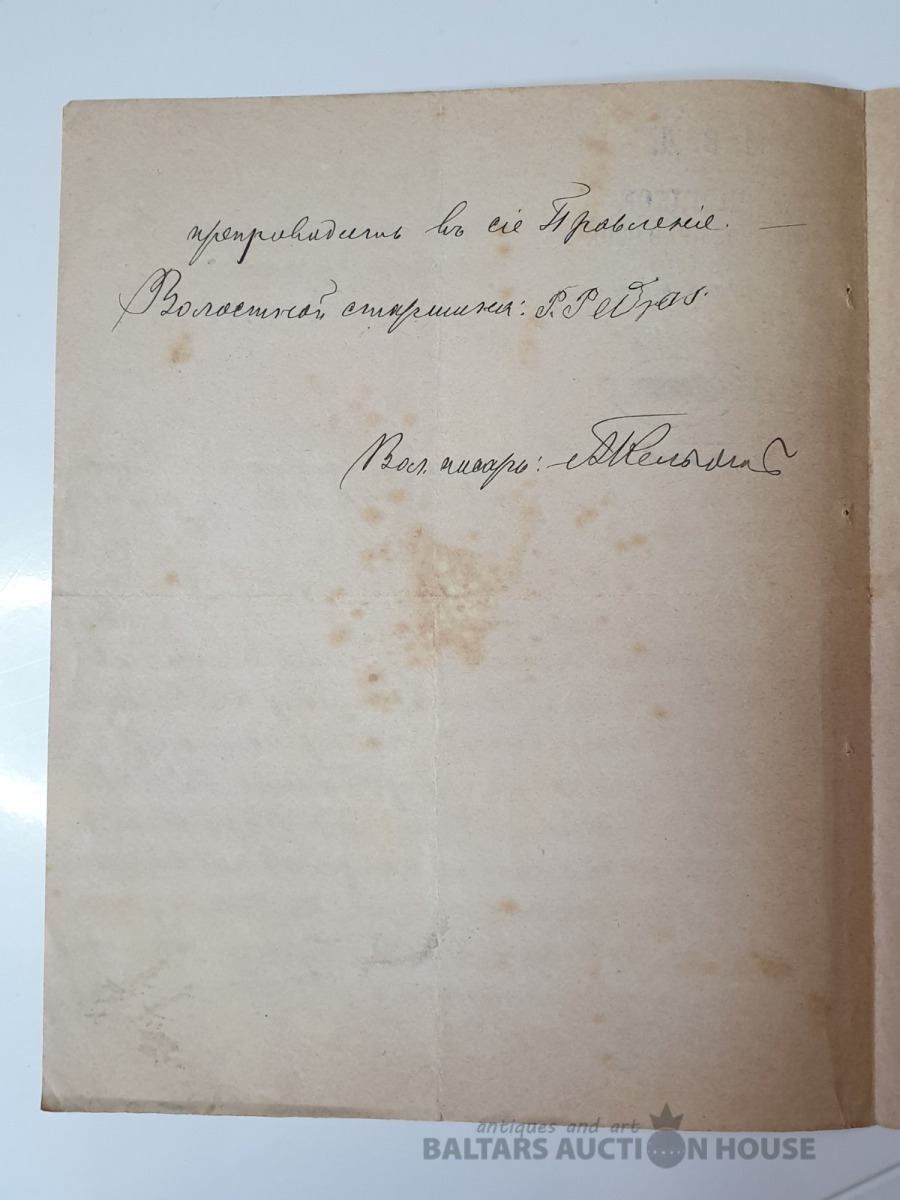 препроводить въ сіе Правленіе. —
Волостной старшина:
Вол. писарь:
antiques and art
BALTARS AUCTION HOUSE